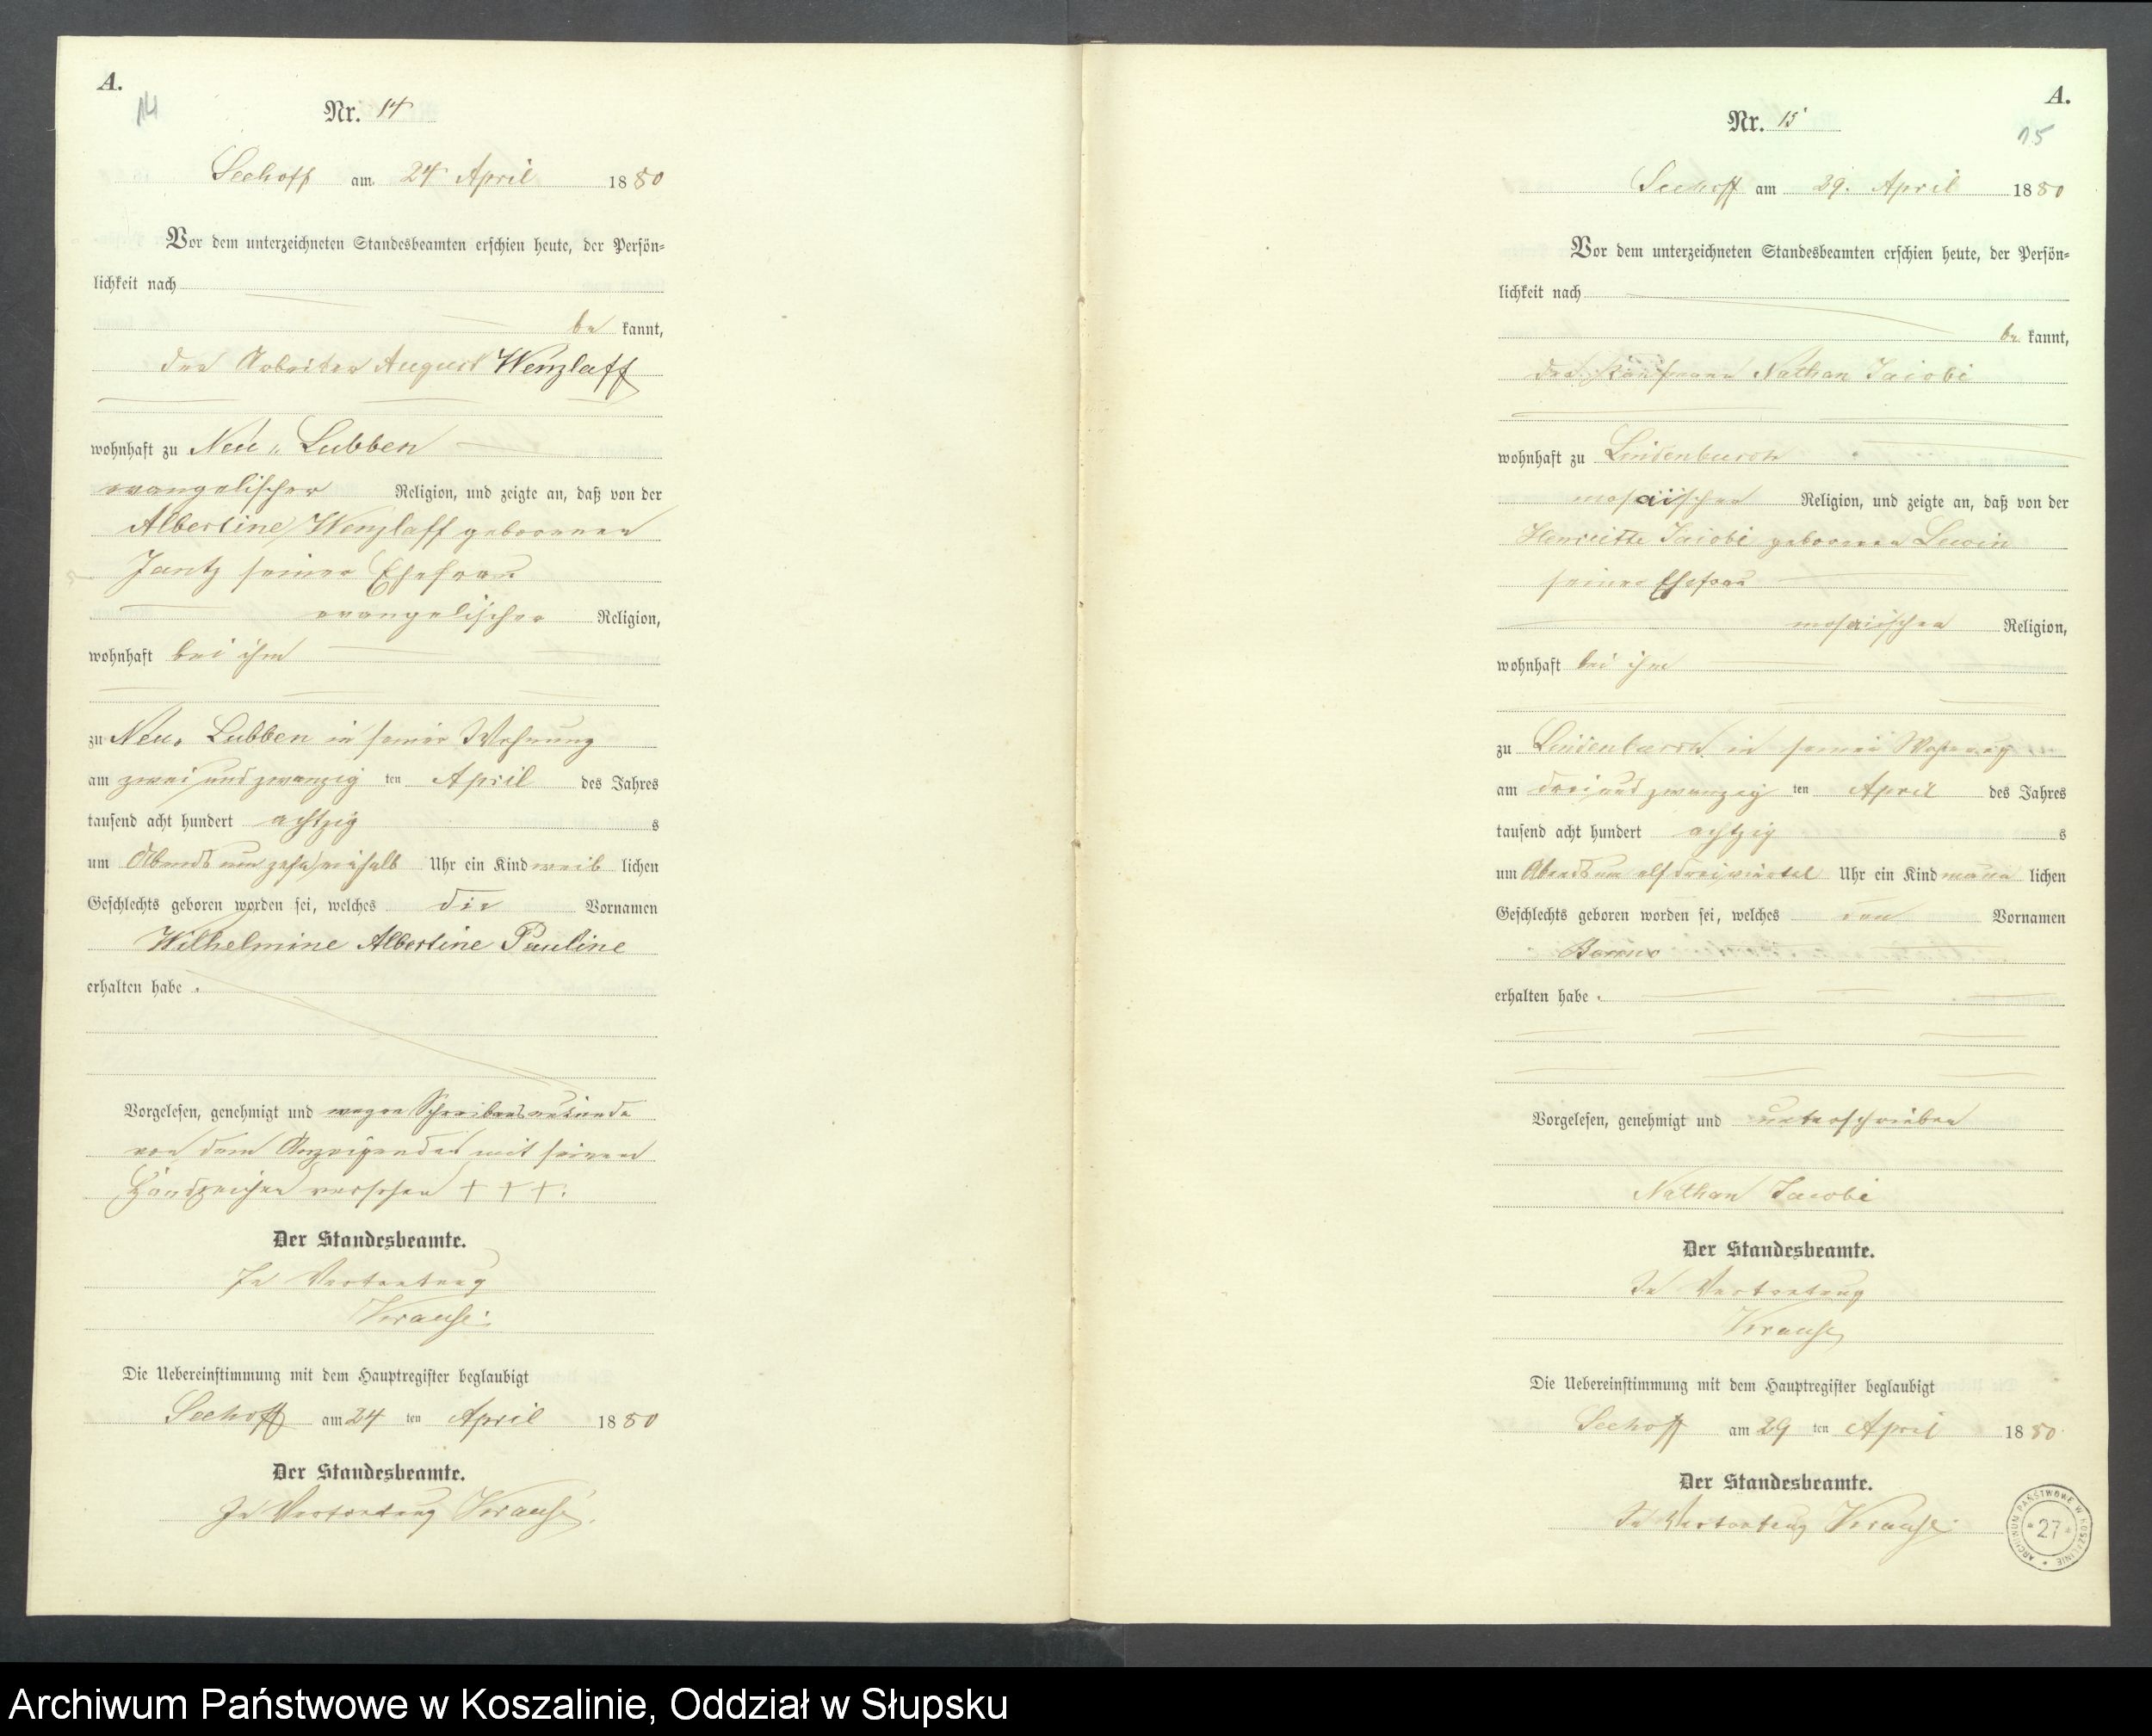 A.
14
Nr. 14
Seehoff am 24 April 1880
Vor dem unterzeichneten Standesbeamten erschien heute, der Persön-
lichkeit nach
be kannt,
der Arbeiter August Wenzlaff
wohnhaft zu Neu-Lubben
evangelischer Religion, und zeigte an, daß von der
Albertine Wenzlaff geborenen
Jantz seiner Ehefrau
evangelischer Religion,
wohnhaft bei ihm
zu Neu-Lubben in seiner Wohnung
am zwei und zwanzig ten April des Jahres
tausend acht hundert achtzig s
um Abends um zehn einhalb Uhr ein Kind weib lichen
Geschlechts geboren worden sei, welches die Vornamen
Wilhelmine Albertine Pauline
erhalten habe.
Vorgelesen, genehmigt und wegen Schreibensunkunde
von dem Anzeigenden mit seinem
Handzeichen versehen + + +.
Der Standesbeamte.
In Vertretung
Krause.
Die Uebereinstimmung mit dem Hauptregister beglaubigt
Seehoff am 24 ten April 1880
Der Standesbeamte.
In Vertretung Krause.
A.
15
Nr. 15
Seehoff am 29. April 1880
Vor dem unterzeichneten Standesbeamten erschien heute, der Persön-
lichkeit nach
be kannt,
der Kaufmann Nathan Jacobi
wohnhaft zu Lindenbusch
mosaischer Religion, und zeigte an, daß von der
Henriette Jacobi geborenen Lewin
seiner Ehefrau
mosaischer Religion,
wohnhaft bei ihm
zu Lindenbusch in seiner Wohnung
am drei und zwanzig ten April des Jahres
tausend acht hundert achtzig s
um Abends um elf dreiviertel Uhr ein Kind männ lichen
Geschlechts geboren worden sei, welches den Vornamen
erhalten habe.
Vorgelesen, genehmigt und unterschrieben
Nathan Jacobi
Der Standesbeamte.
In Vertretung
Krause
Die Uebereinstimmung mit dem Hauptregister beglaubigt
Seehoff am 29 ten April 1880
Der Standesbeamte.
In Vertretung Krause.
ARCHIWUM PAŃSTWOWE W KOSZALINIE
* 27 *
Archiwum Państwowe w Koszalinie, Oddział w Słupsku